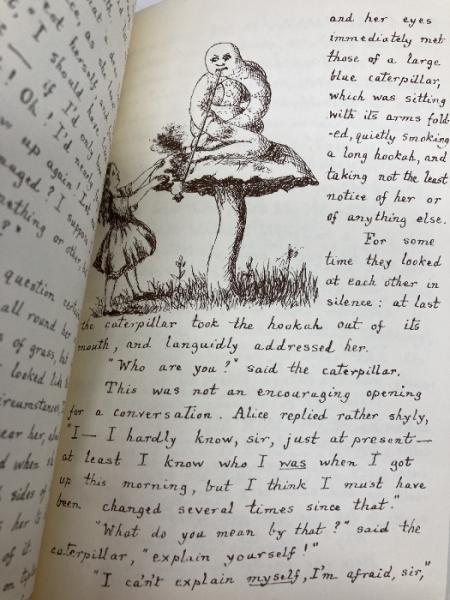 as she
I should
if I'd only
! Oh! I'd nearly
up again! Let
? I suppose
or other
question
all round her
of grass, but
looked
her
when
sides of
her to
of it.
and her eyes
immediately met
those of a large
blue caterpillar,
which was sitting
with its arms fold-
-ed, quietly smoking
a long hookah, and
taking not the least
notice of her or
of anything else.
For some
time they looked
at each other in
silence: at last
the caterpillar took the hookah out of its
mouth, and languidly addressed her.
"Who are you?" said the caterpillar.
This was not an encouraging opening
for a conversation. Alice replied rather shyly,
"I — I hardly know, sir, just at present —
at least I know who I was when I got
up this morning, but I think I must have
been changed several times since that."
"What do you mean by that?" said the
caterpillar, "explain yourself!"
"I ca'n't explain myself, I'm afraid, sir,"